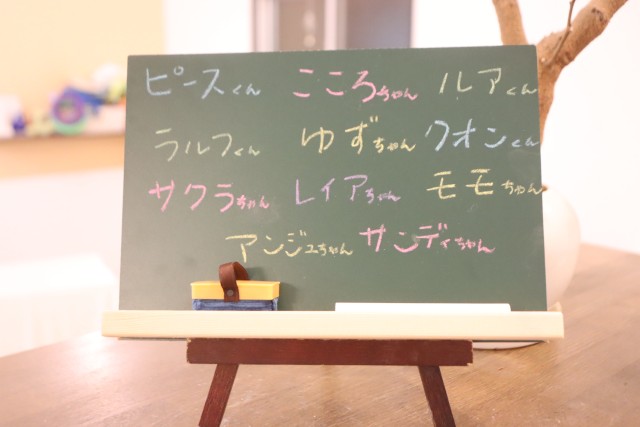 ピースくん こころちゃん ルアくん
ラルフくん ゆずちゃん クオンくん
サクラちゃん レイアちゃん モモちゃん
アンジュちゃん サンディちゃん